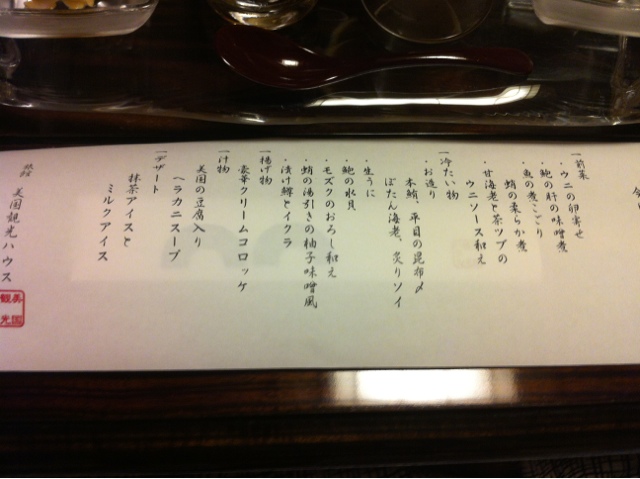 一前菜
・ウニの卵寄せ
・鮑の肝の味噌煮
・魚の煮こごり
蛸の柔らか煮
・甘海老と茶ツブの
ウニソース和え
一冷たい物
・お造り
本鮪、平目の昆布〆
ぼたん海老、炙りソイ
・生うに
・鮑の水貝
・モズクのおろし和え
・蛸の湯引きの柚子味噌風
・漬け鱒とイクラ
一揚げ物
豪華クリームコロッケ
一汁物
美国の豆腐入り
ヘラカニスープ
一デザート
抹茶アイスと
ミルクアイス
旅館 美国観光ハウス
美国
観光